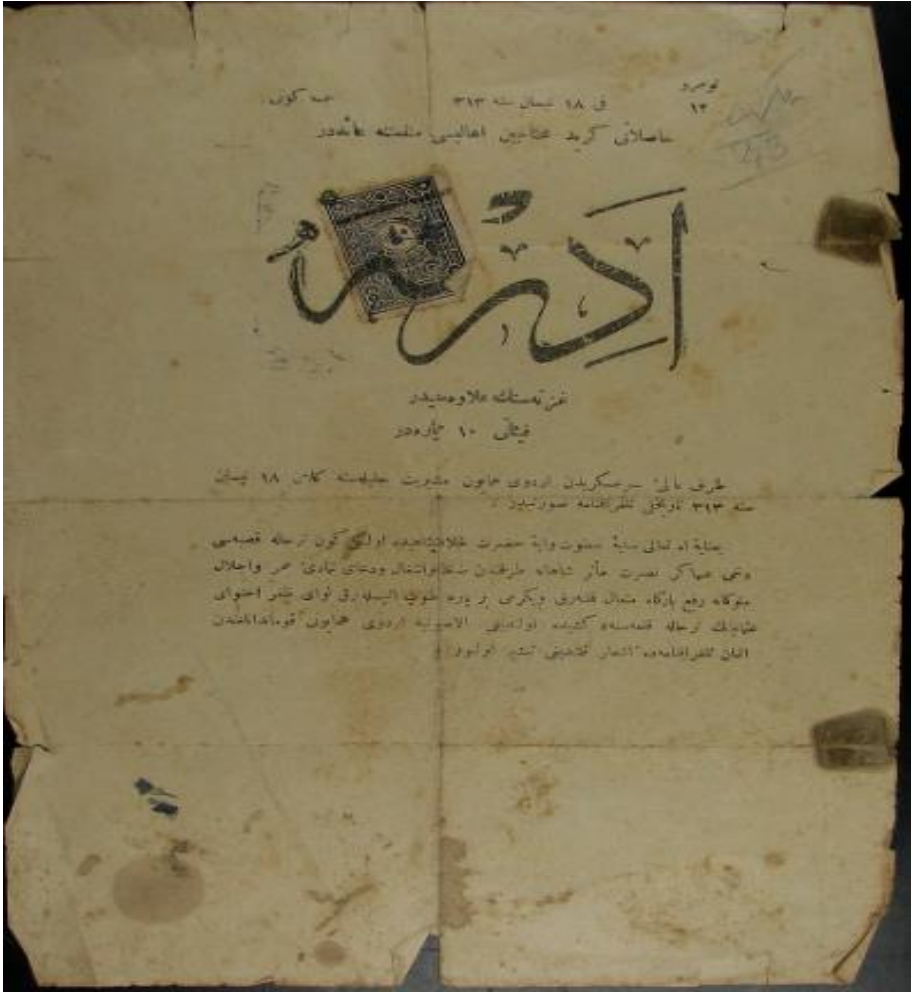 نومرو
١٢
فی ١٨ نیسان سنه ٣١٣
جمعه کونی
حاصلاتی کرید محتاجین اهالیسی منفعتنه عائددر
اَدِرْنه
غزته‌سنك علاوه‌سیدر
فیئاتی ١٠ پاره‌در
طرف عالیٔ سرعسکریدن اردوی همایون مشیریت جلیله‌سنه کلان ١٨ نیسان
سنه ٣١٣ تاریخلی تلغرافنامه صورتیدر :
بعنایة الله تعالی سایهٔ حضرت اولکی کون ترحاله قصبه‌سی
دخی عساکر نصرت مآثر شاهانه طرفندن ضبط واشغال ودعای عمر واجلال
ملوکانه رفع بارکاه متعال قلنه‌رق ویکرمی بر پاره طوپ لوای ظفر احتوای
عثمانینك ترحاله قلعه‌سنه کشیده اولندیغی اردوی همایون قوماندانلغندن
آلنان تلغرافنامه‌ده اشعار قلندیغی تبشیر اولنور